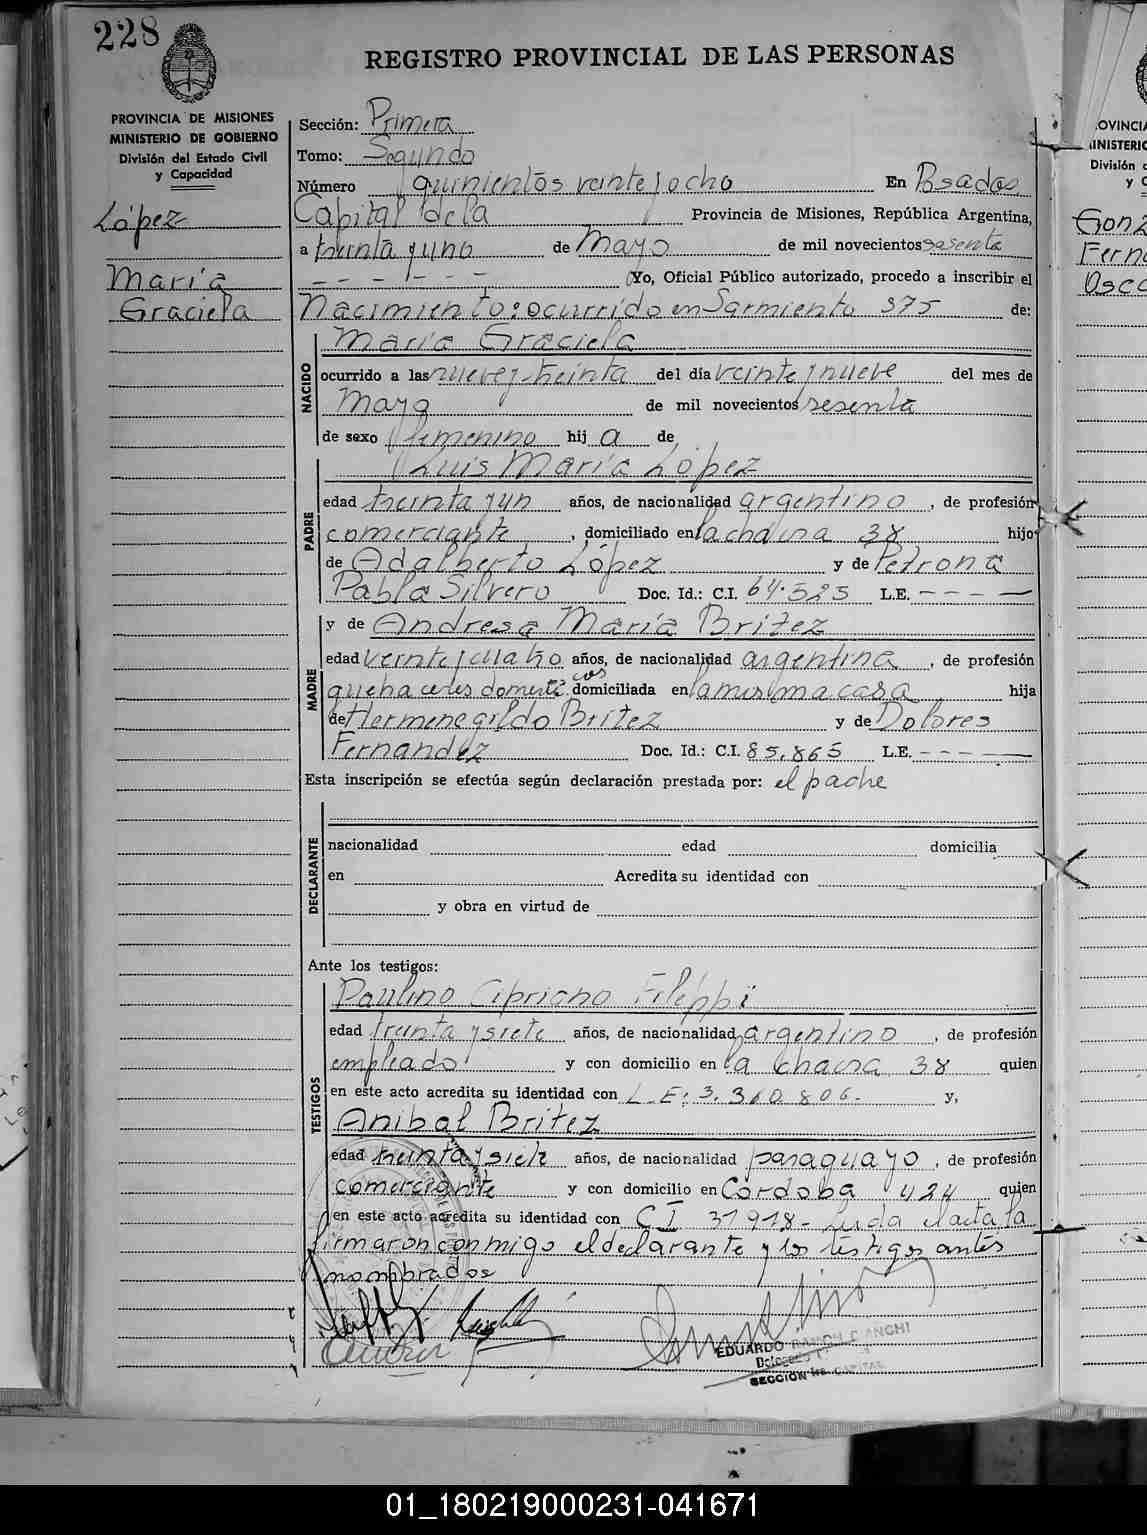 228
REGISTRO PROVINCIAL DE LAS PERSONAS
PROVINCIA DE MISIONES
MINISTERIO DE GOBIERNO
División del Estado Civil
y Capacidad
López
María
Graciela
Sección: Primera
Tomo: Segundo
Número quinientos veinte y ocho En Posadas
Capital de la Provincia de Misiones, República Argentina,
a treinta y uno de Mayo de mil novecientos sesenta
- - - - - - Yo, Oficial Público autorizado, procedo a inscribir el
Nacimiento: ocurrido en Sarmiento 375 de:
NACIDO
María Graciela
ocurrido a las nueve y treinta del día veinte y nueve del mes de
Mayo de mil novecientos sesenta
de sexo femenino hij a de
PADRE
Luis María López
edad treinta y un años, de nacionalidad argentino, de profesión
comerciante, domiciliado en la chacra 38 hijo
de Adalberto López y de Petrona
Pabla Silvero Doc. Id.: C.I. 64.523 L.E. - - - -
MADRE
y de Andresa María Britez
edad veinte y cuatro años, de nacionalidad argentina, de profesión
quehaceres domesticos domiciliada en la misma casa hija
de Hermenegildo Britez y de Dolores
Fernandez Doc. Id.: C.I. 85.865 L.E. - - - - -
Esta inscripción se efectúa según declaración prestada por: el padre
DECLARANTE
nacionalidad edad domicilia
en Acredita su identidad con
y obra en virtud de
Ante los testigos:
TESTIGOS
Paulino Cipriano Filippi
edad treinta y siete años, de nacionalidad argentino, de profesión
empleado y con domicilio en la chacra 38 quien
en este acto acredita su identidad con L.E: 3.360.806.- y,
Anibal Britez
edad treinta y siete años, de nacionalidad paraguayo, de profesión
comerciante y con domicilio en Córdoba 424 quien
en este acto acredita su identidad con CI 31918- Leida el acta la
firmaron conmigo el declarante y los testigos antes
nombrados
EDUARDO RAMON BIANCHI
SECCION CAPITAL
OVINCIA
INISTERIO
División d
y C
Gonz
Ferna
Osca
01_180219000231-041671